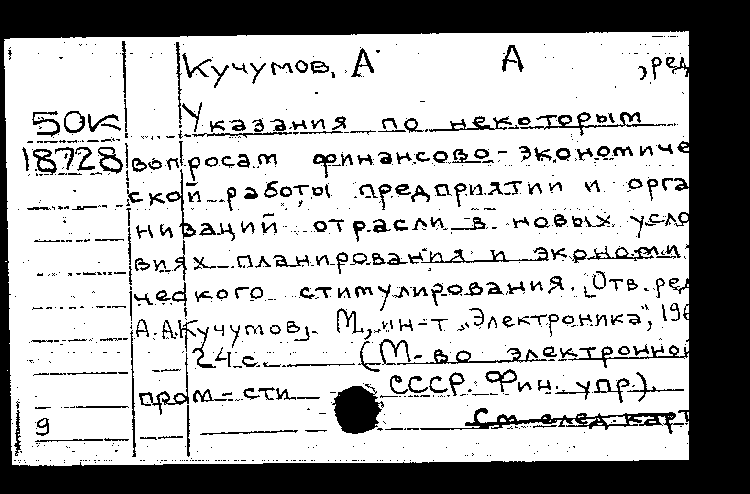 Кучумов, А А ,ред
50к Указания по некоторым
18728 вопросам финансово-экономиче
ской работы предприятий и орга
низаций отрасли в новых усло
виях планирования и экономи-
ческого стимулирования. [Отв. ред
А.А.Кучумов]. М., ин-т "Электроника", 196
24с. (М-во электронной
пром-сти СССР. Фин. упр.).
См след карт
9